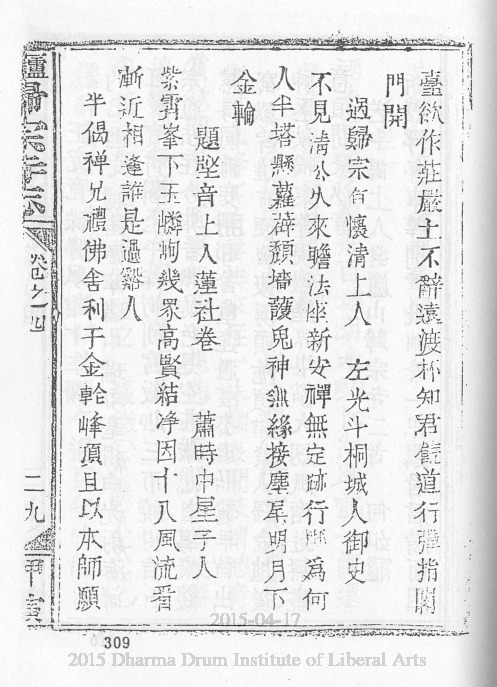 臺欲作莊嚴土不辭遠渡杯知君饒道行彈指閣
門開
過歸宗有懷清上人 左光斗桐城人御史
不見清公久來瞻法座新安禪無定跡行腳為何
人半塔懸蘿薜頹墻護鬼神無緣接塵尾明月下
金輪
題堅音上人蓮社卷 蕭時中星子人
紫霄峯下玉嶙峋幾眾高賢結淨因十八風流番
漸近相逢誰是過谿人
半偈禪兄禮佛舍利于金輪峰頂且以本師願
廬歸宗寺志
卷之四
二九
甲寅
2015-04-17
309
2015 Dharma Drum Institute of Liberal Arts